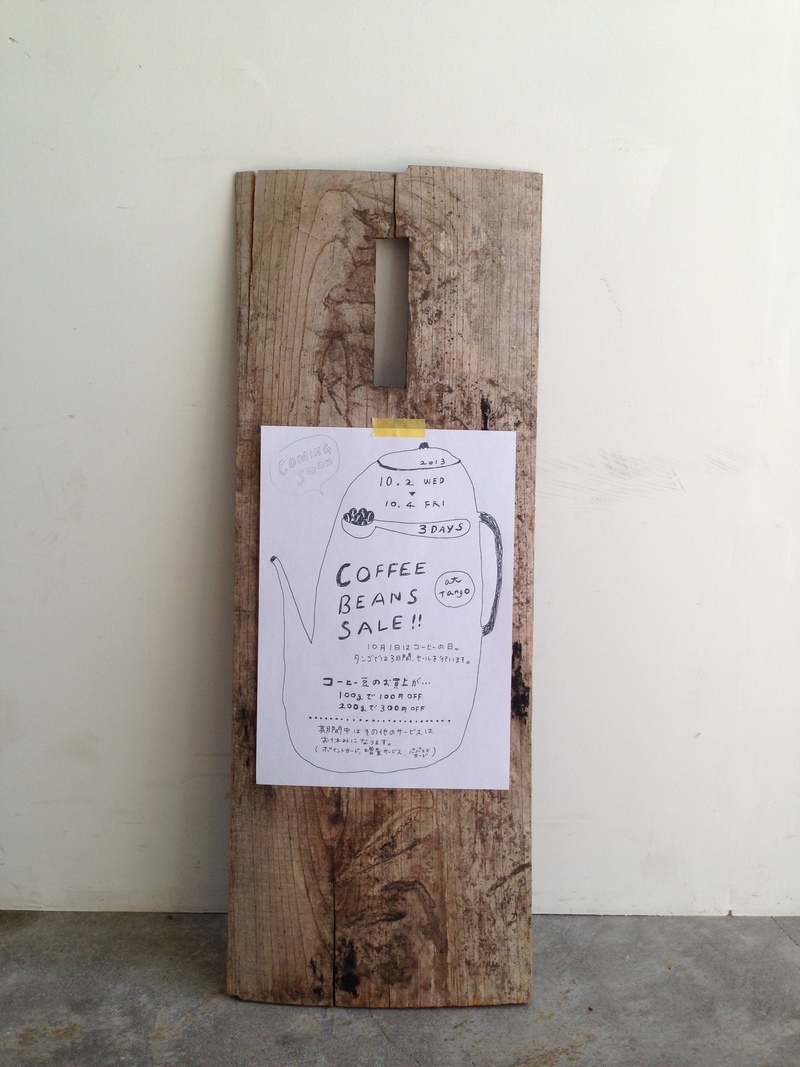 COMING
SOON
2013
10.2 WED
▼
10.4 FRI
3DAYS
COFFEE
BEANS
SALE!!
at
Tango
10月1日はコーヒーの日。
タンゴでは3日間、セールを行います。
コーヒー豆のお買上が...
100gまで100円OFF
200gまで300円OFF
期間中はその他のサービスは
お休みになります。
(ポイントカード、増量サービス、
カード)